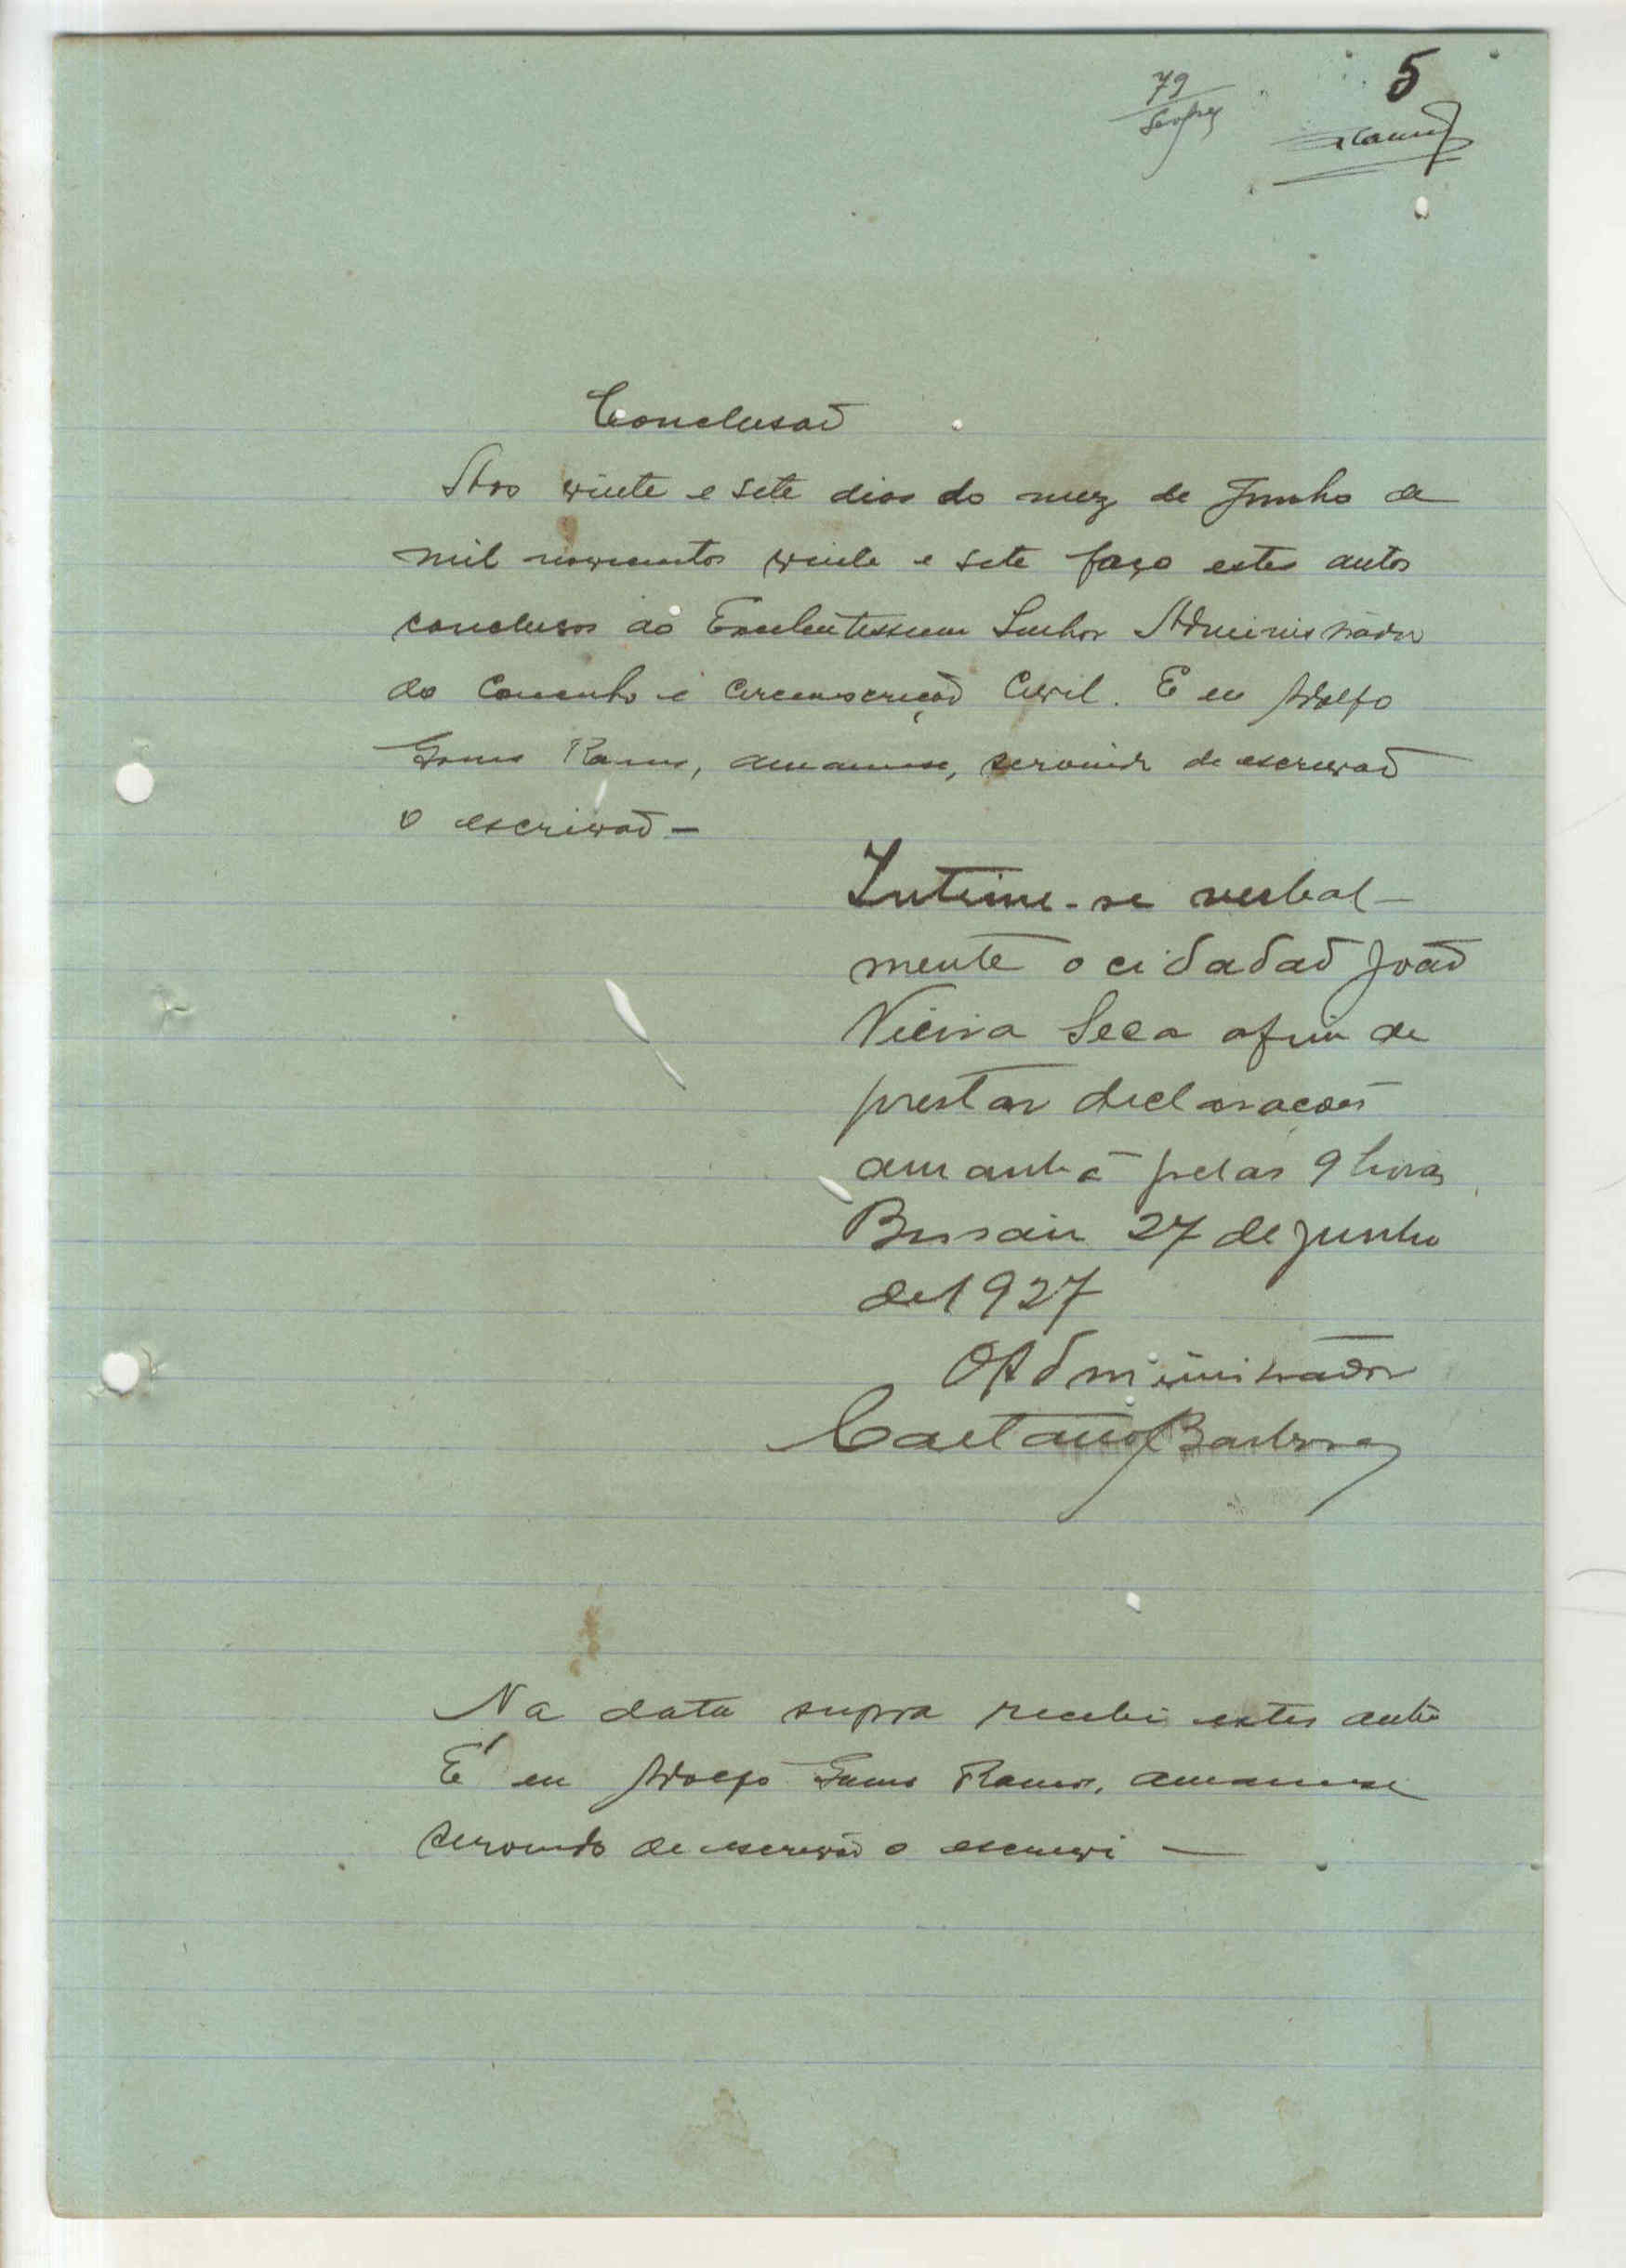 79
5
Ramos
Conclusão
Aos vinte e sete dias do mez de Junho de
mil novecentos vinte e sete faço estes autos
conclusos ao Excelentissimo Senhor Administrador
do Concelho e Circunscrição Civil. E eu Adolfo
Gomes Ramos, amanuense, servindo de escrivão
o escrivão —
Intime-se verbal-
mente o cidadão João
Vieira Seca afim de
prestar declarações
amanhã pelas 9 horas
Bissau 27 de junho
de 1927
O Administrador
Caetano Barbosa
Na data supra recebi estes autos
E eu Adolfo Gomes Ramos, amanuense
servindo de escrivão o escrevi —